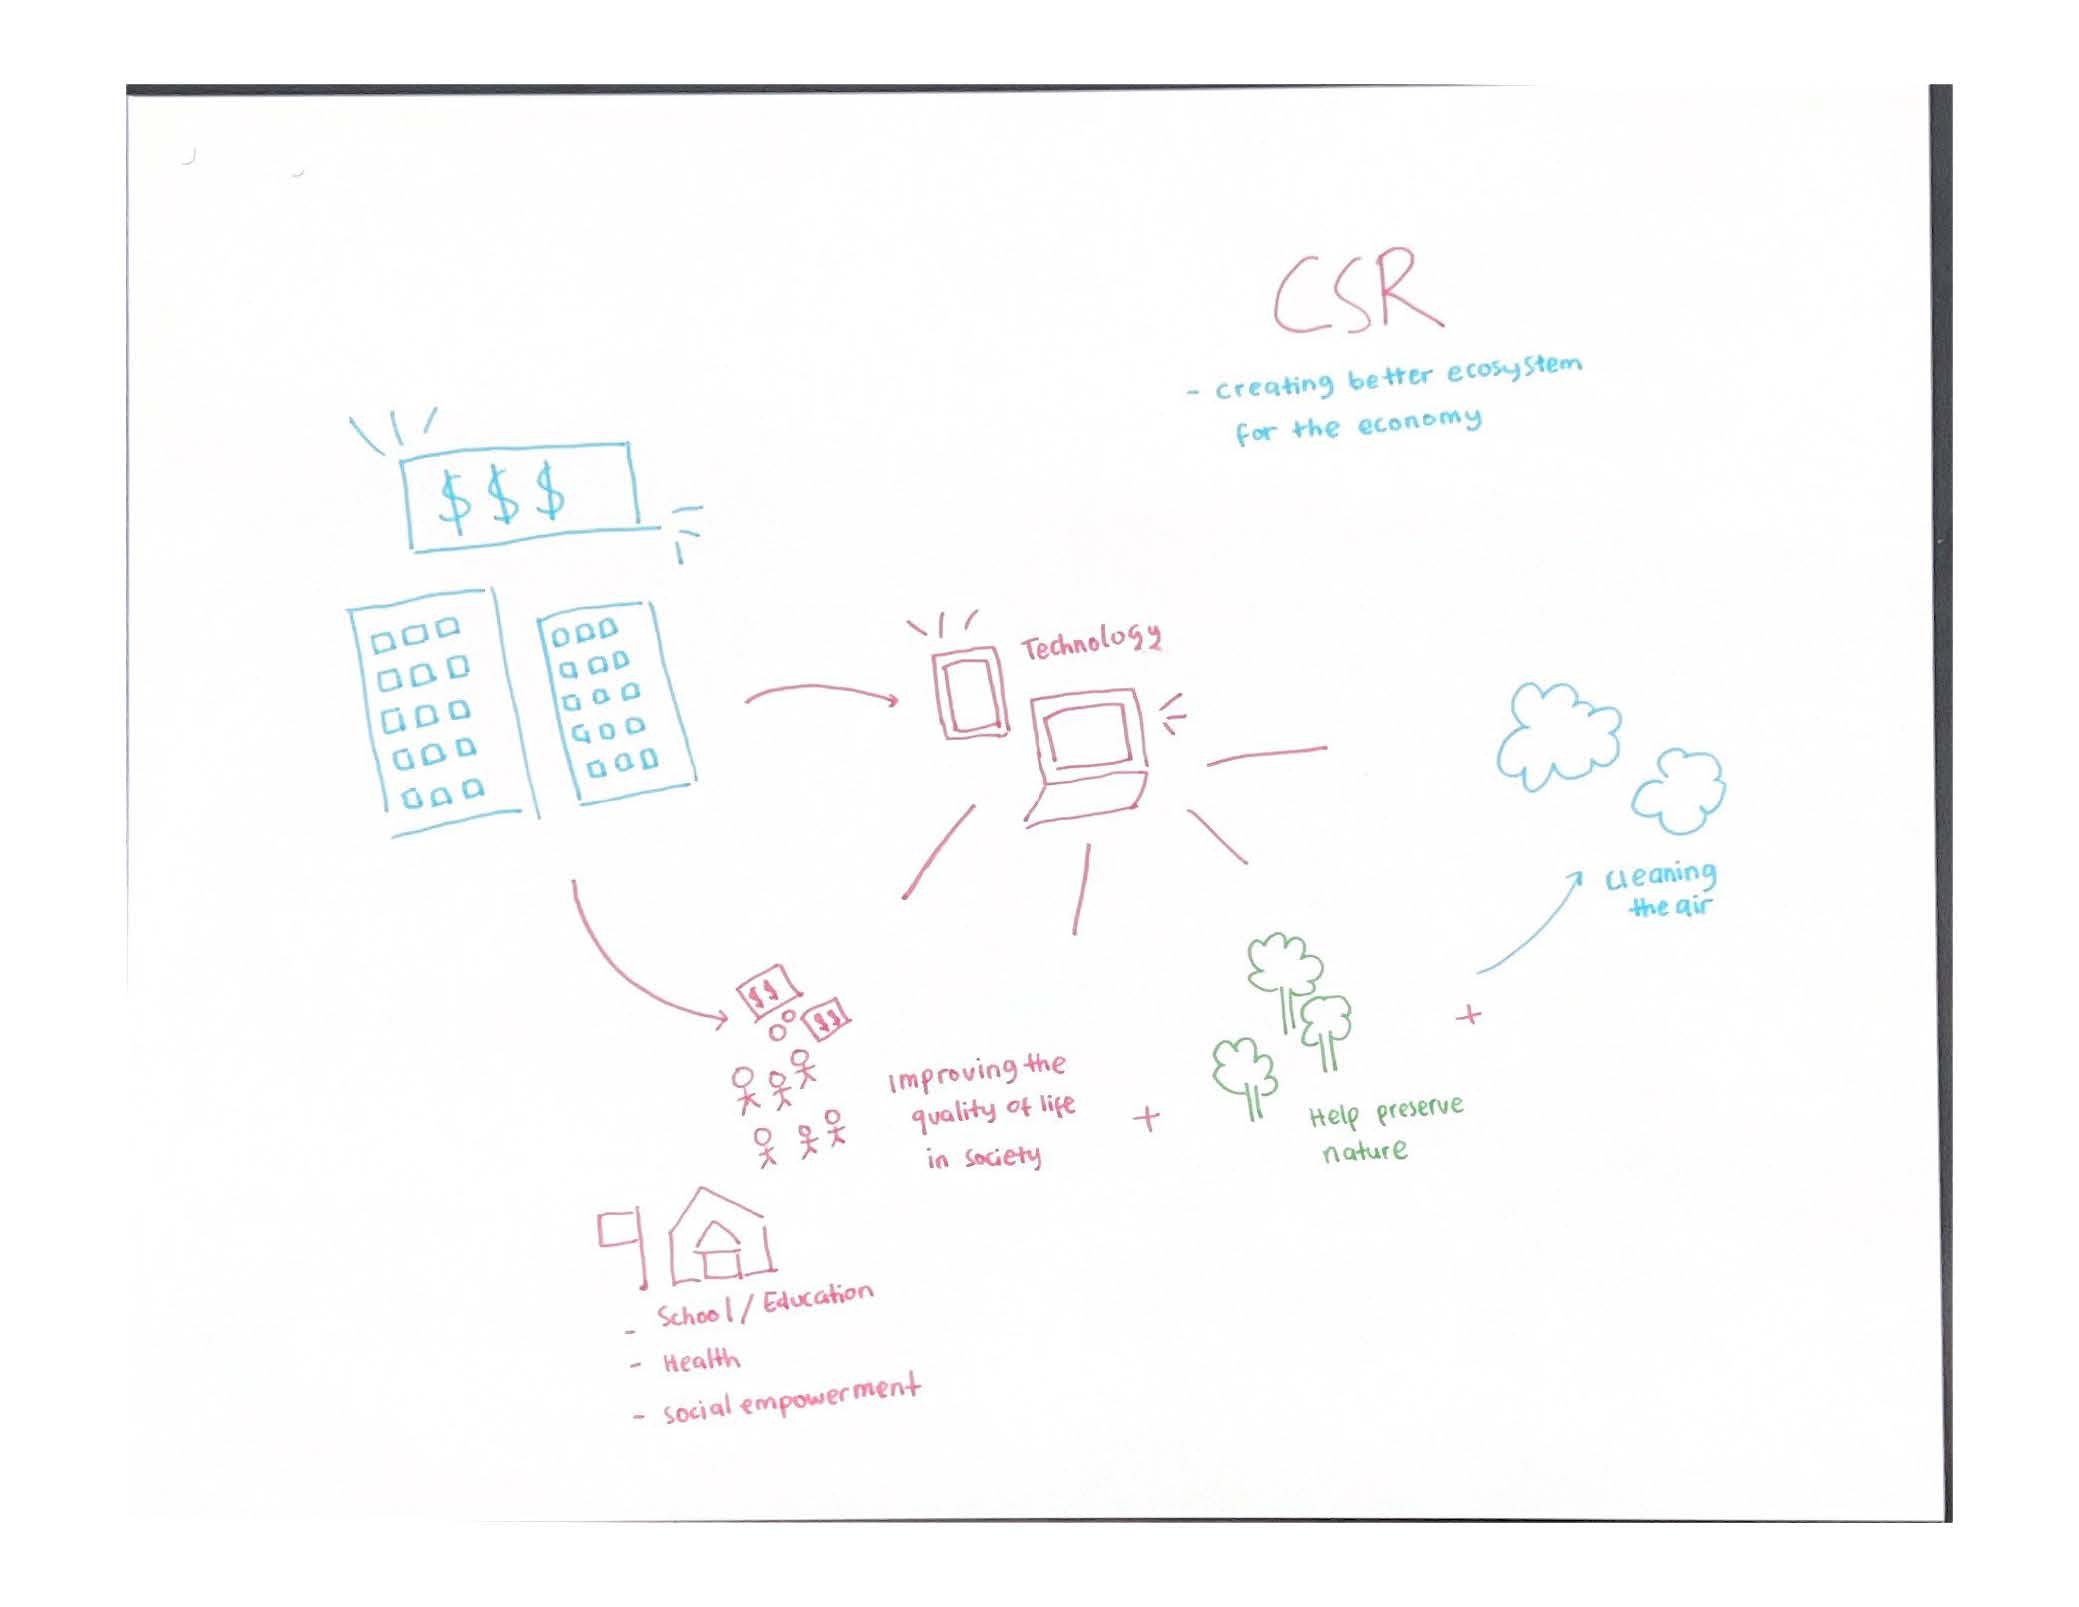 CSR
- creating better ecosystem
for the economy
$ $ $
Technology
cleaning
the air
$$
$$
Improving the
quality of life
in society
+
+
Help preserve
nature
- School / Education
- Health
- social empowerment